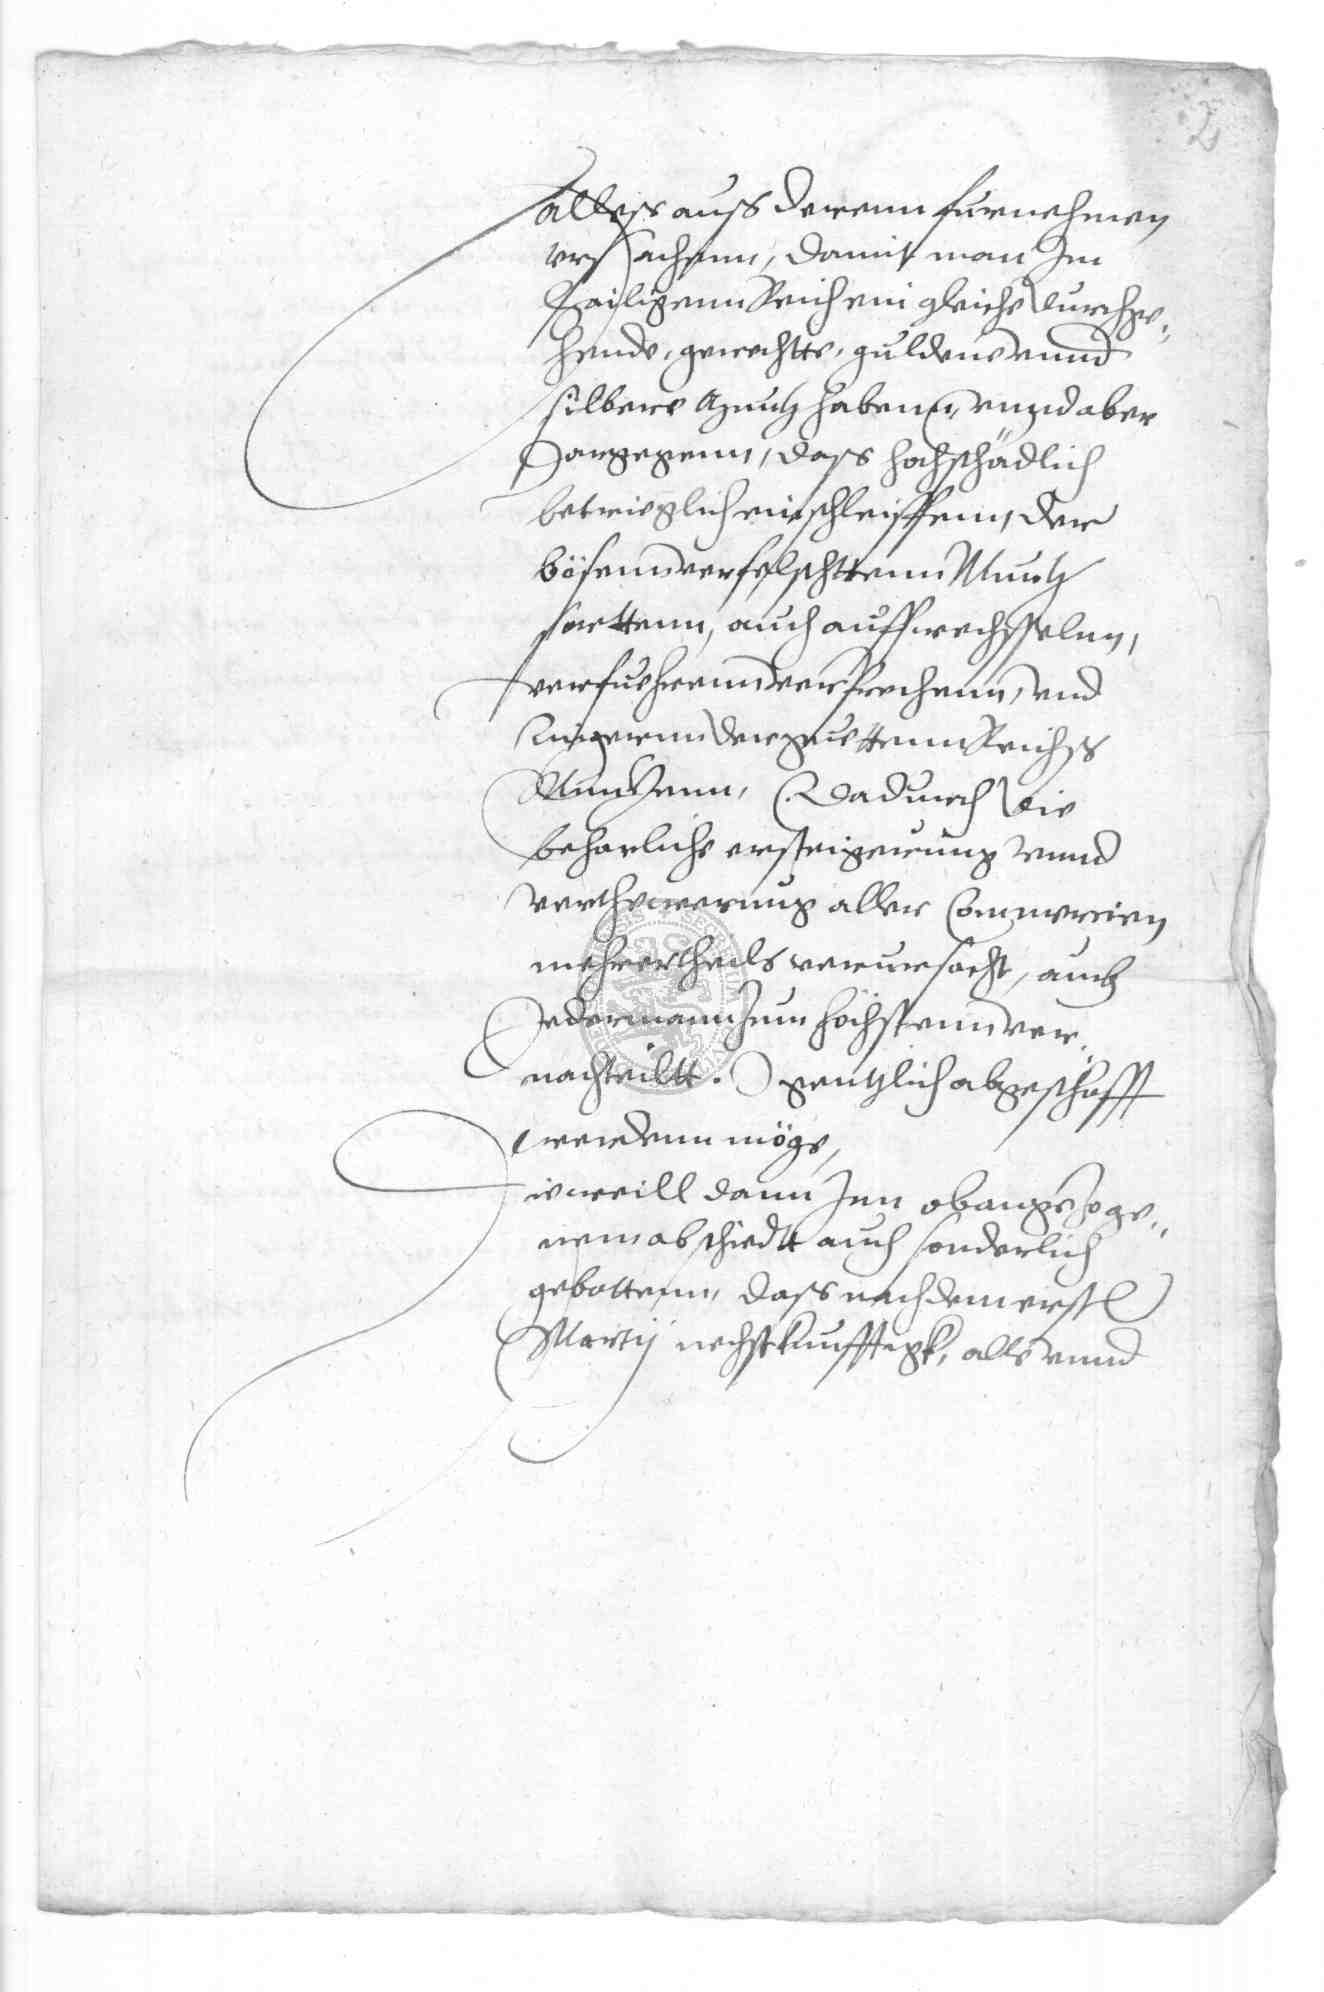 2
alless auss derenn furnehmen
vrsachenn, damit man Im
Hailigenn Reich ein gleiche durchge,,
hende, gerechtte, guldene vnnd
silbere Muntz habenn, vnnd aber
Dargegenn, dass hochschädlich
betrieglich einschleiffenn, der
bösenn verfelschttenn Muntz
sorttenn, auch auffwechsseln,
verfuehrenn verbrechenn, vnd
Ringerenn der guettenn Reichss
Muntzenn, Dadurch die
beharliche ersteigerung vnnd
vertheuerung aller Commercien
mehrertheils verursacht, auch
Jedermann Zum höchstenn ver,,
nachteiltt. Gentzlich abgeschafft
werdenn möge,
Dieweill dann Inn obangezoge,,
nem abschiedtt auch sonderlich
gebottenn, dass nach dem erst
Martij nechstkunfftigk, alle vnnd